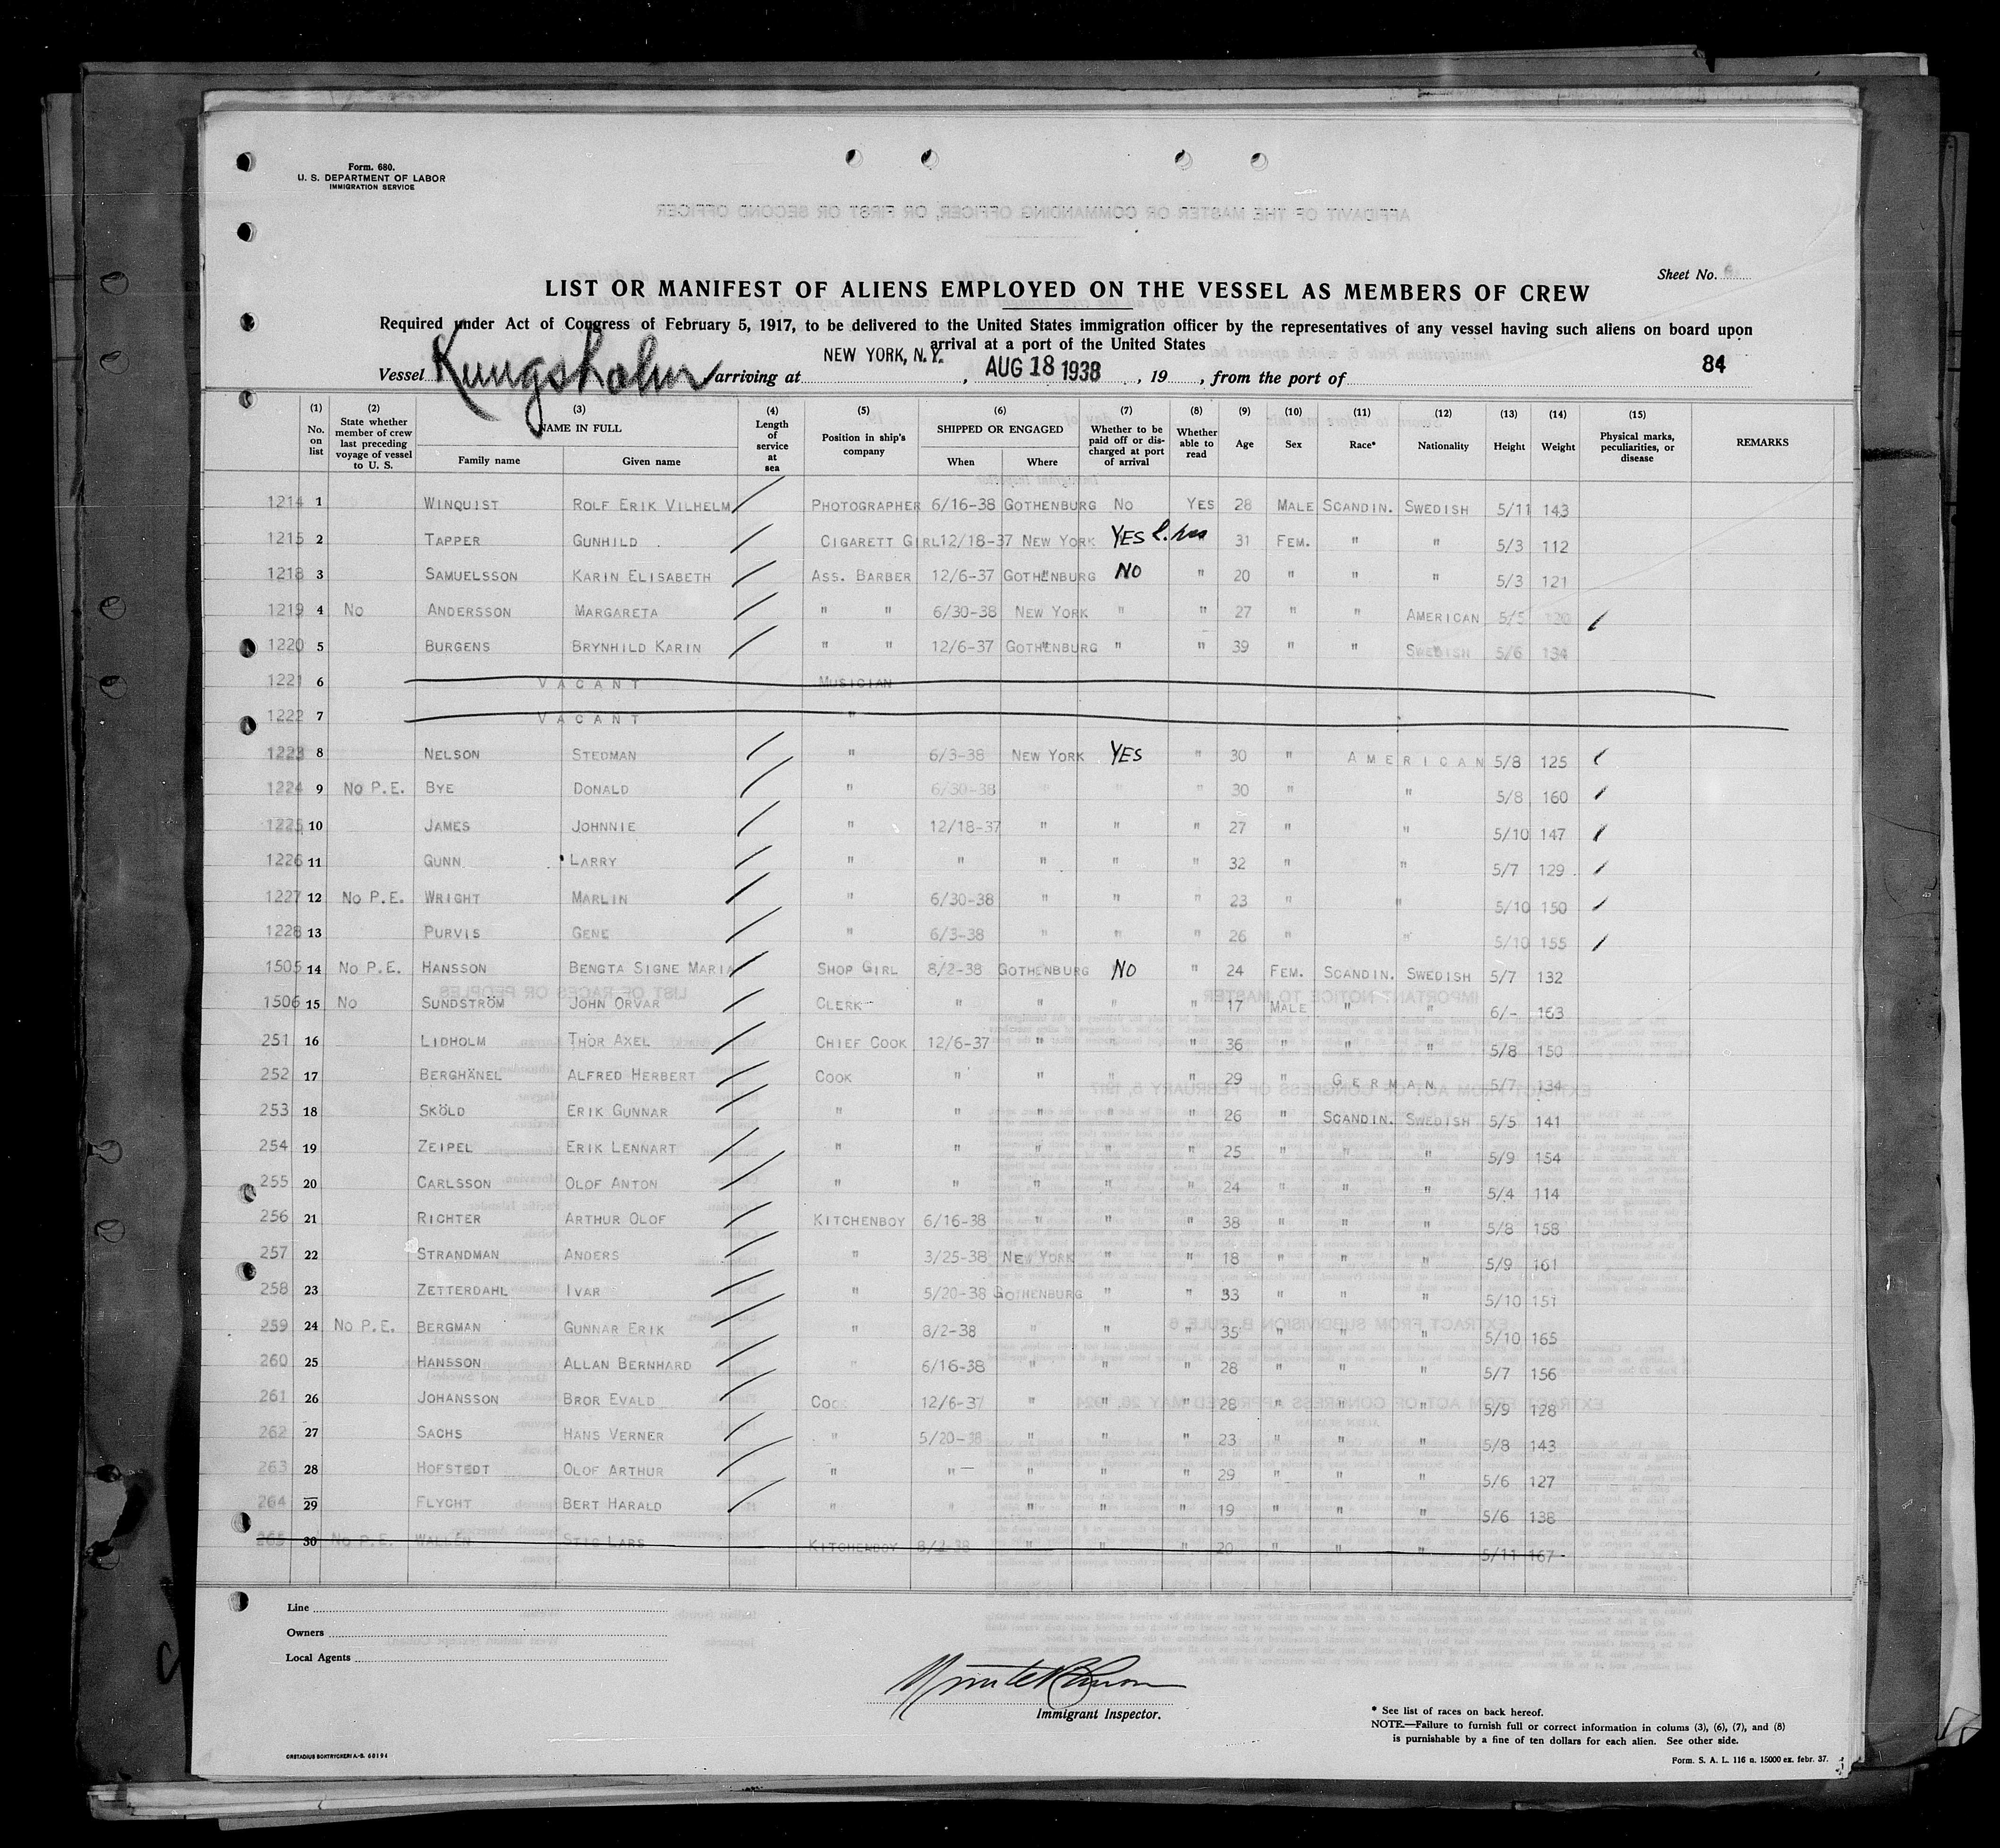 Form. 680.
U. S. DEPARTMENT OF LABOR
IMMIGRATION SERVICE
Sheet No.
LIST OR MANIFEST OF ALIENS EMPLOYED ON THE VESSEL AS MEMBERS OF CREW
Required under Act of Congress of February 5, 1917, to be delivered to the United States immigration officer by the representatives of any vessel having such aliens on board upon
arrival at a port of the United States
84
Vessel Kungsholm arriving at NEW YORK, N.Y. , AUG 18 1938 , 19 , from the port of
(1) No. on list (2) State whether member of crew last preceding voyage of vessel to U. S. (3) NAME IN FULL Family name Given name (4) Length of service at sea (5) Position in ship's company (6) SHIPPED OR ENGAGED When Where (7) Whether to be paid off or discharged at port of arrival (8) Whether able to read (9) Age (10) Sex (11) Race* (12) Nationality (13) Height (14) Weight (15) Physical marks, peculiarities, or disease REMARKS
1214 1 WINQUIST ROLF ERIK VILHELM PHOTOGRAPHER 6/16-38 GOTHENBURG NO YES 28 MALE SCANDIN. SWEDISH 5/11 143
1215 2 TAPPER GUNHILD CIGARETT GIRL 12/18-37 NEW YORK YES 31 FEM. " " 5/3 112
1218 3 SAMUELSSON KARIN ELISABETH ASS. BARBER 12/6-37 GOTHENBURG NO " 20 " " " 5/3 121
1219 4 NO ANDERSSON MARGARETA " " 6/30-38 NEW YORK " " 27 " " AMERICAN 5/5 120
1220 5 BURGENS BRYNHILD KARIN " " 12/6-37 GOTHENBURG " " 39 " " SWEDISH 5/6 134
1221 6 VACANT MUSICIAN
1222 7 VACANT "
1223 8 NELSON STEDMAN " 6/3-38 NEW YORK YES " 30 " AMERICAN 5/8 125
1224 9 NO P.E. BYE DONALD " 6/30-38 " " " 30 " " 5/8 160
1225 10 JAMES JOHNNIE " 12/18-37 " " " 27 " " 5/10 147
1226 11 GUNN LARRY " " " " " 32 " " 5/7 129
1227 12 NO P.E. WRIGHT MARLIN " 6/30-38 " " " 23 " " 5/10 150
1228 13 PURVIS GENE " 6/3-38 " " " 26 " " 5/10 155
1505 14 NO P.E. HANSSON BENGTA SIGNE MARIA SHOP GIRL 8/2-38 GOTHENBURG NO " 24 FEM. SCANDIN. SWEDISH 5/7 132
1506 15 NO SUNDSTRÖM JOHN ORVAR CLERK " " " " 17 MALE " " 6/- 163
251 16 LIDHOLM THOR AXEL CHIEF COOK 12/6-37 " " " 36 " " " 5/8 150
252 17 BERGHÄNEL ALFRED HERBERT COOK " " " " 29 " GERMAN 5/7 134
253 18 SKÖLD ERIK GUNNAR " " " " " 26 " SCANDIN. SWEDISH 5/5 141
254 19 ZEIPEL ERIK LENNART " " " " " 25 " " " 5/9 154
255 20 CARLSSON OLOF ANTON " " " " " 24 " " " 5/4 114
256 21 RICHTER ARTHUR OLOF KITCHENBOY 6/16-38 " " " 38 " " " 5/8 158
257 22 STRANDMAN ANDERS " 3/25-38 NEW YORK " " 18 " " " 5/9 161
258 23 ZETTERDAHL IVAR " 5/20-38 GOTHENBURG " " 33 " " " 5/10 151
259 24 NO P.E. BERGMAN GUNNAR ERIK " 8/2-38 " " " 35 " " " 5/10 165
260 25 HANSSON ALLAN BERNHARD " 6/16-38 " " " 28 " " " 5/7 156
261 26 JOHANSSON BROR EVALD COOK 12/6-37 " " " 28 " " " 5/9 128
262 27 SACHS HANS VERNER " 5/20-38 " " " 23 " " " 5/8 143
263 28 HOFSTEDT OLOF ARTHUR " " " " " 29 " " " 5/6 127
264 29 FLYCHT BERT HARALD " " " " " 19 " " " 5/6 138
265 30 NO P.E. WALLÉN STIG LARS KITCHENBOY 8/2-38 " " " 20 " " " 5/11 167
Line
Owners
Local Agents
Immigrant Inspector.
* See list of races on back hereof.
NOTE.—Failure to furnish full or correct information in colums (3), (6), (7), and (8)
is punishable by a fine of ten dollars for each alien. See other side.
Form. S. A. L. 116 n. 15000 ex. febr. 37.